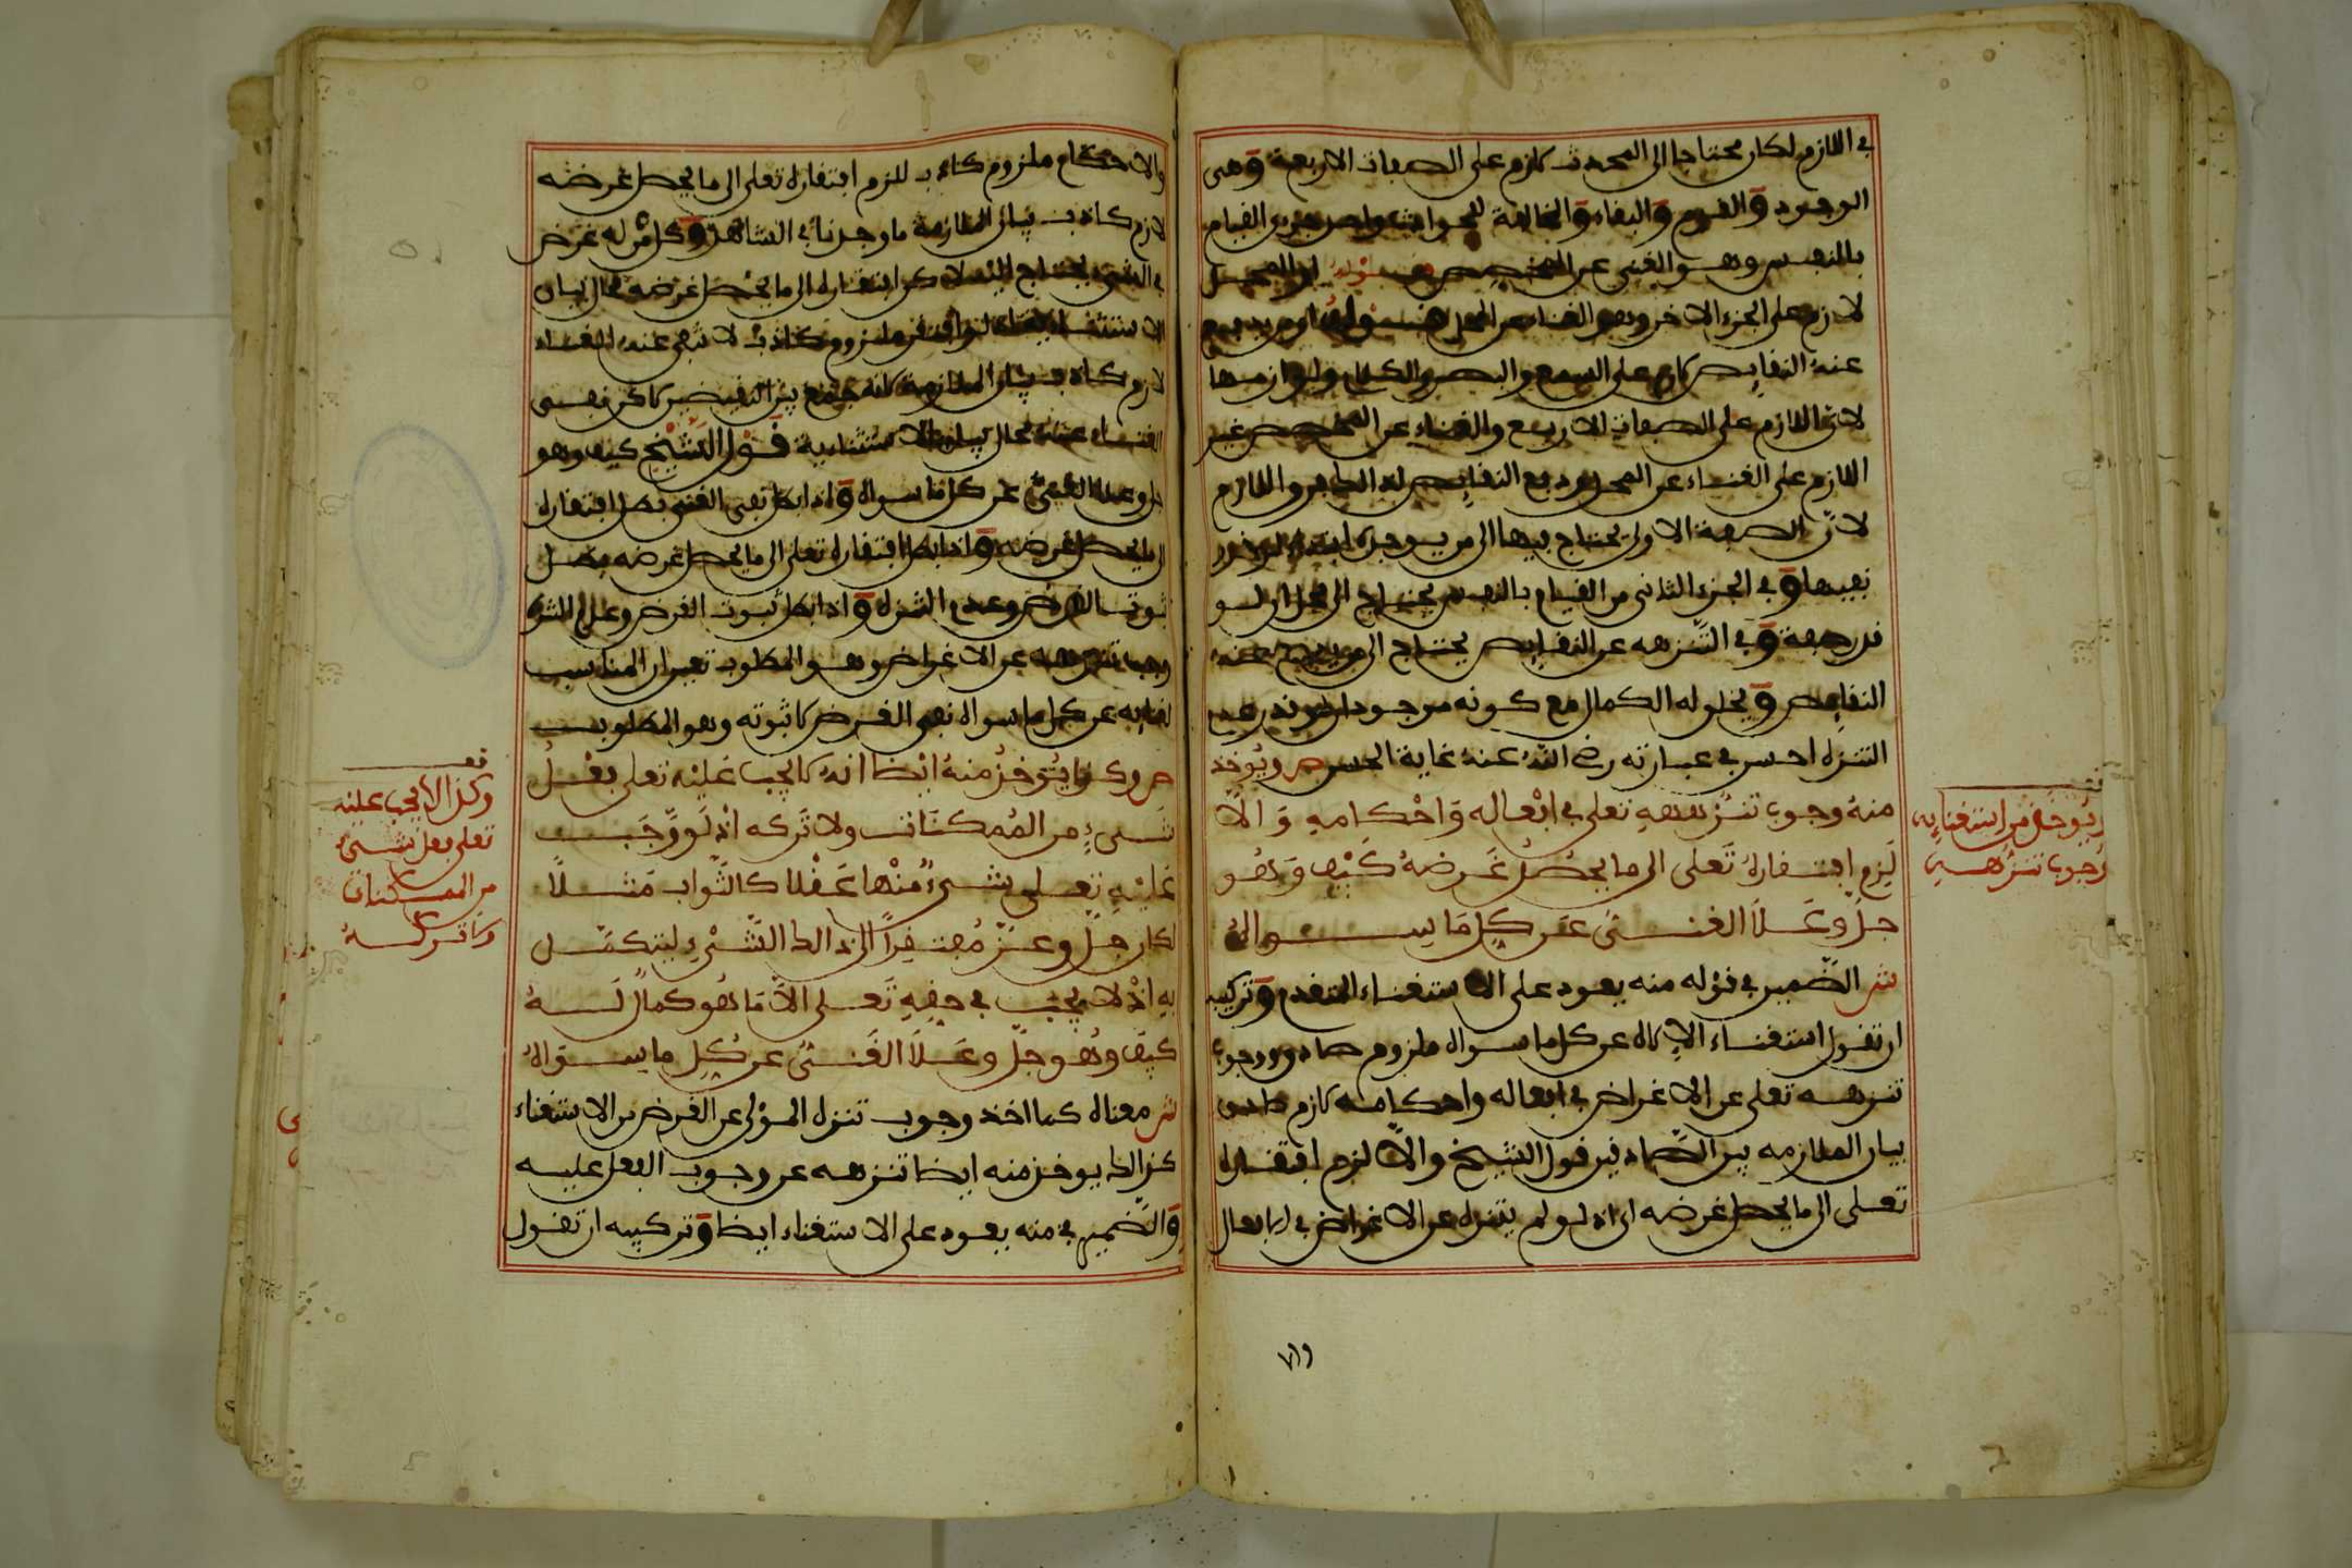 في اللازم لكان محتاجا الى المحدث لازم على الصفات الاربعة وهى
الوجود والقدم والبقاء والمخالفة للحوادث واحد جزءى القيام
بالنفس وهو الغنى عن المخصص او المحل
لازم على الجزء الاخر وهو الغناء عن المحل او من يدفع
عنه النقايص لازم على السمع والبصر والكلام ولوازمها
لان اللازم على الصفات الاربع والغناء عن المخصص غير
اللازم على الغناء عن المحل ودفع النقايص لذالك واللازم
لان الصفة الاولى يحتاج فيها الى من يوجده
نفيها وفي الجزء الثانى من القيام بالنفس يحتاج الى محل ان لو
قدر صفة وفي التنزه عن النقايص يحتاج الى من يدفع عنه
النقايص ويخلو له الكمال مع كونه موجودا
التنزه احسن في عبارته رضى الله عنه غاية الحسن ص ويوخذ
منه وجوب تنزهه تعلى في افعاله واحكامه والا
لزم افتقاره تعلى الى ما يحصل غرضه كيف وهو
جل وعلا الغنى عن كل ما سواه
ش الضمير في قوله منه يعود على الاستغناء المتقدم وتركيبه
ان تقول استغناء الاله عن كل ما سواه ملزوم صادق ووجوب
تنزهه تعلى عن الاغراض في افعاله واحكامه لازم صادق
بيان الملازمه بين الصادقين قول الشيخ والا لزم افتقاره
تعلى الى ما يحصل غرضه اى اذ لو لم يتنزه عن الاغراض في الافعال
يوخذ من استغنايه
وجوب تنزهه
والاحكام ملزوم كاذب للزم افتقاره تعلى الى ما يحصل غرضه
لازم كاذب بيان الملازمة ما وجدنا في الشاهد وكل من له غرض
في الشىء يحتاج اليه لاكن افتقاره الى ما يحصل غرضه محال بيان
الاستثناء ملزوم كاذب لانتفى عنه الغناء
لازم كاذب بيان الملازمة لانه جمع بين النقيضين لاكن نفى
الغناء عنه محال بيان الاستثناءية قول الشيخ كيف وهو
جل وعلا الغنى عن كل ما سواه واذا بطل نفى الغنى بطل افتقاره
الى ما يحصل غرضه واذا بطل افتقاره تعلى الى ما يحصل غرضه بطل
ثبوت الغرض وعدم التنزه واذا بطل ثبوت الغرض وعدم التنزه
وجب تنزهه عن الاغراض وهو المطلوب تعين ان المناسب
لغنايه عن كل ما سواه نفى الغرض لا ثبوته وهو المطلوب
ص وكذا يوخذ منه ايضا انه لا يجب عليه تعلى فعل
شىء من الممكنات ولا تركه اذ لو وجب
عليه تعلى شىء منها عقلا كالثواب مثلا
لكان جل وعز مفتقرا الى ذالك الشىء ليتكمل
به اذ لا يجب في حقه تعلى الا ما هو كمال له
كيف وهو جل وعلا الغنى عن كل ما سواه
ش معناه كما اخذ وجوب تنزه المولى عن الغرض من الاستغناء
كذالك يوخذ منه ايضا تنزهه عن وجوب الفعل عليه
والضمير في منه يعود على الاستغناء ايضا وتركيبه ان تقول
وكذا لا يجب عليه
تعلى فعل شىء
من الممكنات
ولا تركه